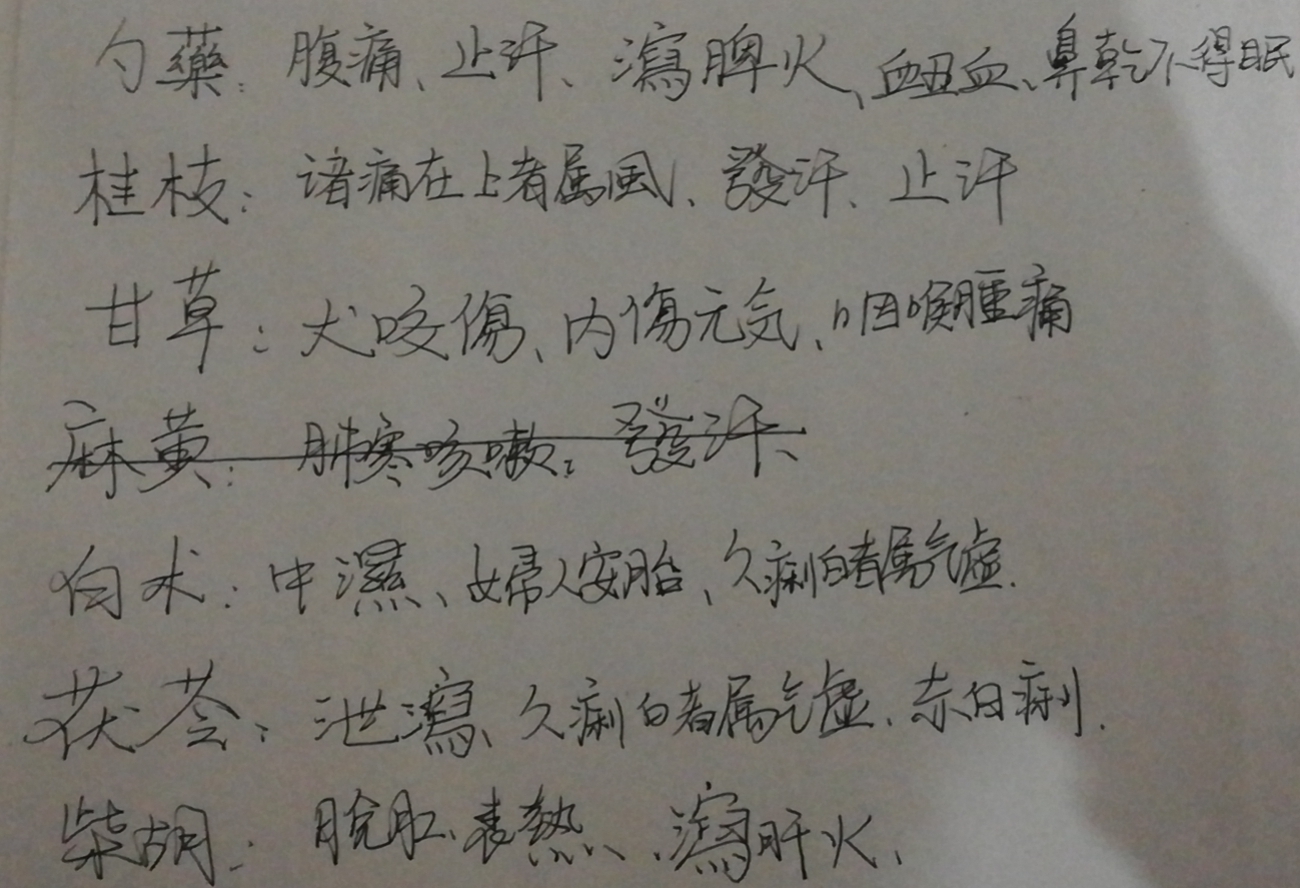 勺藥：腹痛、止汗、瀉脾火、衄血、鼻乾不得眠
桂枝：諸痛在上者属風、發汗、止汗
甘草：犬咬傷、内傷元気、咽喉腫痛
麻黄：肺寒咳嗽：發汗、
白术：中濕、婦人安胎、久痢白者属气虚.
茯苓：泄瀉、久痢白者属气虚、赤白痢.
柴胡：脫肛、表熱、瀉肝火、